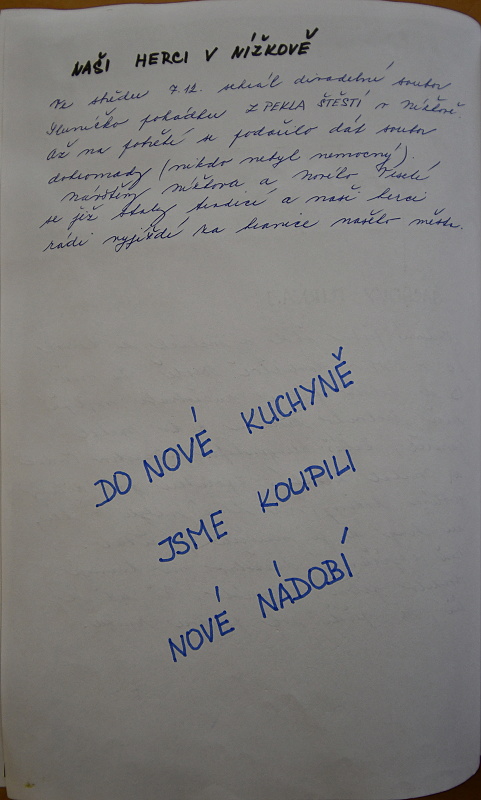 NAŠI HERCI V NÍŽKOVĚ
Ve středu 7.12. sehrál divadelní soubor
Sluníčko pohádku Z PEKLA ŠTĚSTÍ v Nížkově.
Až na potřetí se podařilo dát soubor
dohromady (nikdo nebyl nemocný).
Návštěvy Nížkova a Nového Veselí
se již staly tradicí a naši herci
rádi vyjíždí za hranice našeho města.
DO NOVÉ KUCHYNĚ
JSME KOUPILI
NOVÉ NÁDOBÍ